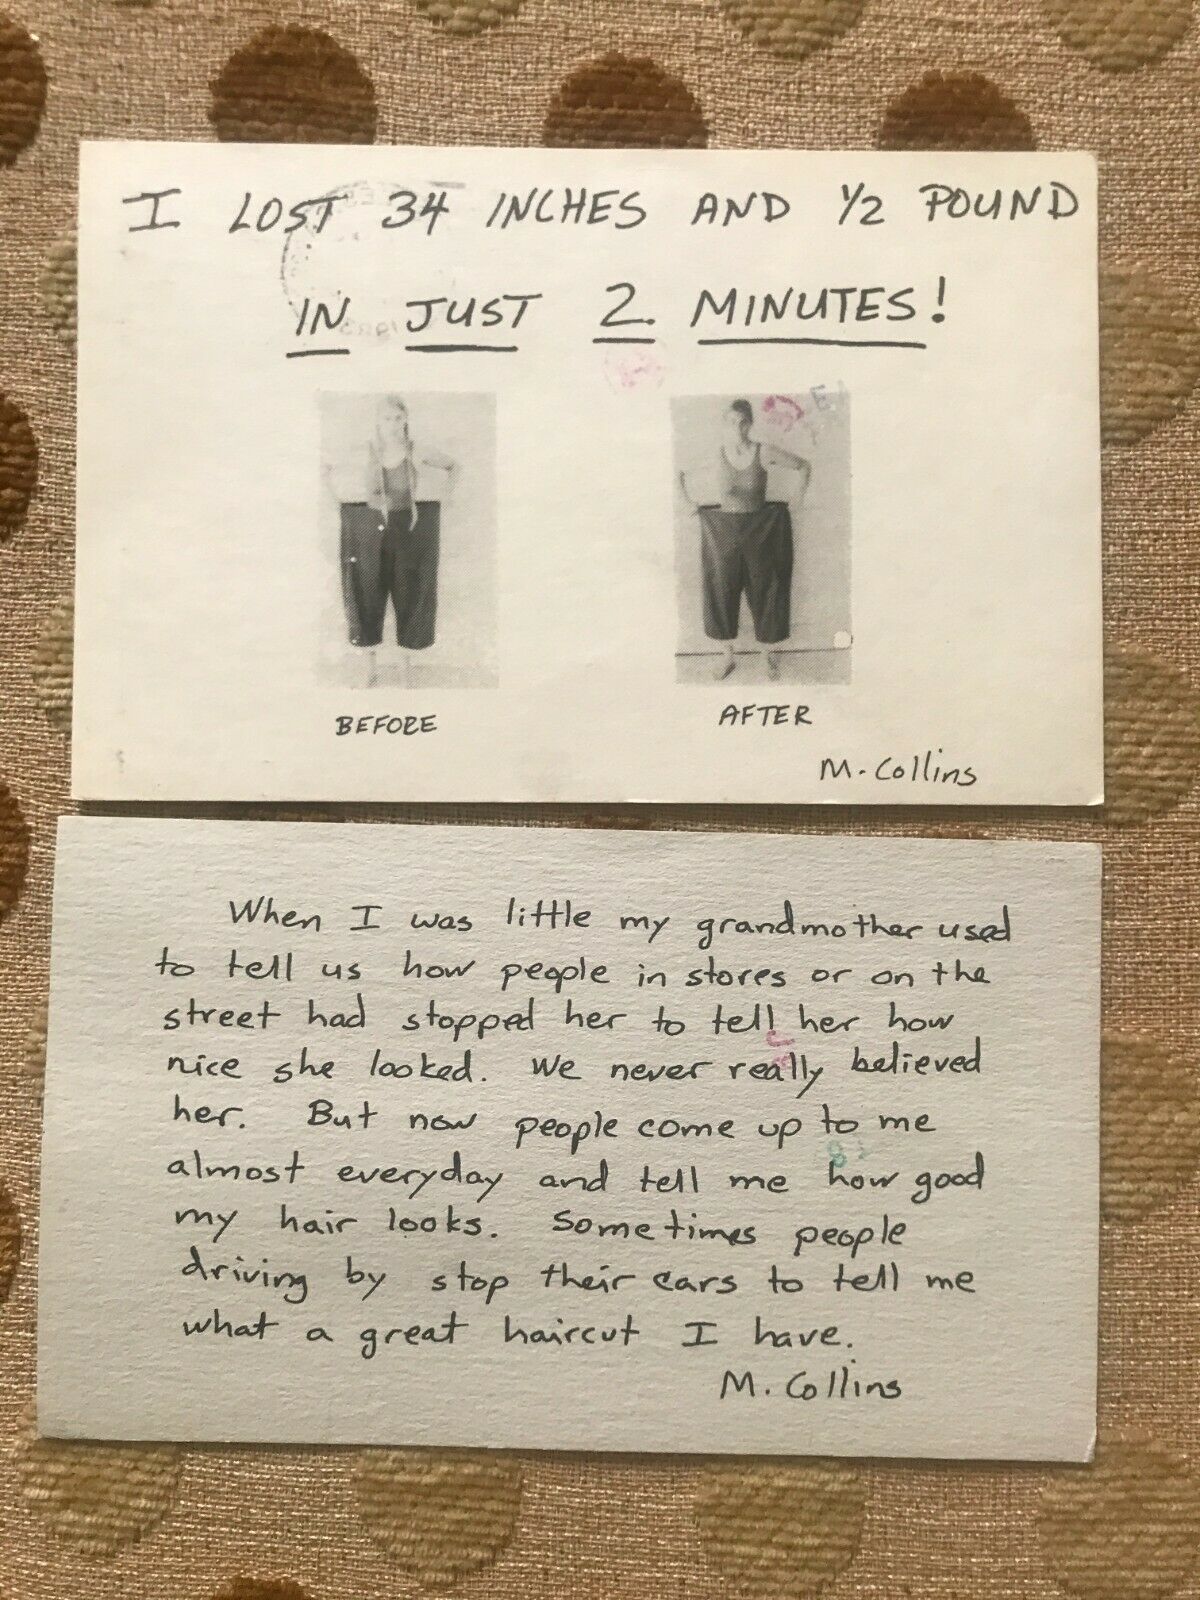 I LOST 34 INCHES AND 1/2 POUND
IN JUST 2 MINUTES!
BEFORE
AFTER
M. Collins
When I was little my grandmother used
to tell us how people in stores or on the
street had stopped her to tell her how
nice she looked. We never really believed
her. But now people come up to me
almost everyday and tell me how good
my hair looks. Sometimes people
driving by stop their cars to tell me
what a great haircut I have.
M. Collins